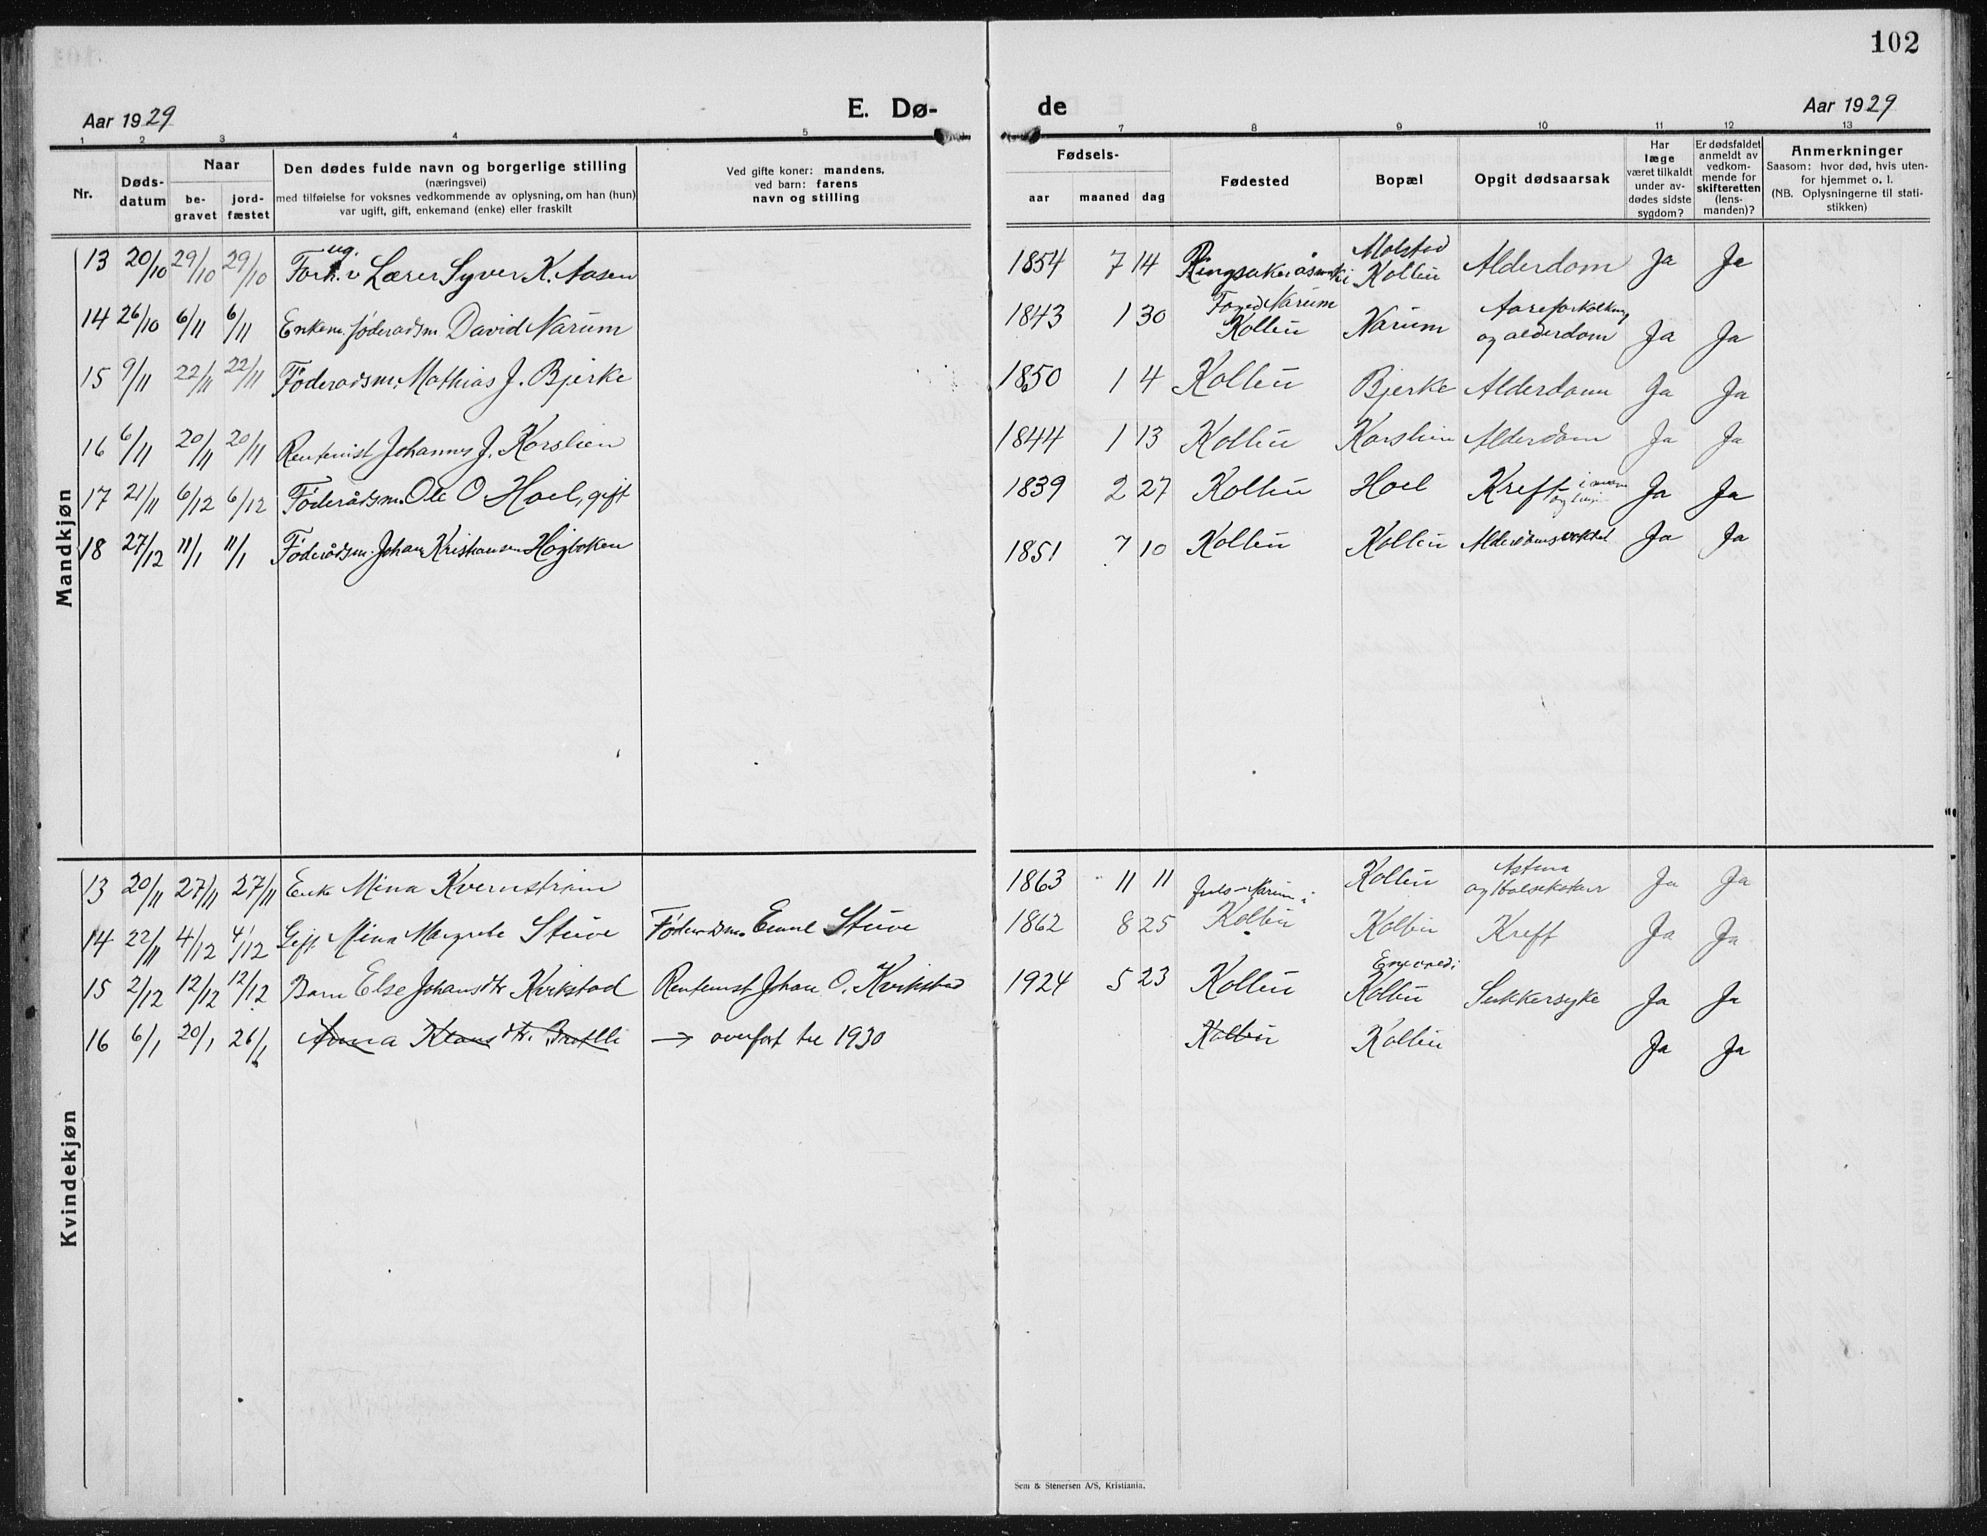 102
Aar 1929
E. Dø-
de
Aar 1929
1 2 3 4 5 7 8 9 10 11 12 13
Nr.
Døds-
datum
Naar
be-
gravet
jord-
fæstet
Den dødes fulde navn og borgerlige stilling
(næringsvei)
med tilføielse for voksnes vedkommende av oplysning, om han (hun)
var ugift, gift, enkemand (enke) eller fraskilt
Ved gifte koner: mandens,
ved barn: farens
navn og stilling
Fødsels-
aar maaned dag
Fødested
Bopæl
Opgit dødsaarsak
Har
læge
været tilkaldt
under av-
dødes sidste
sygdom?
Er dødsfaldet
anmeldt av
vedkom-
mende for
skifteretten
(lens-
manden)?
Anmerkninger
Saasom: hvor død, hvis uten-
for hjemmet o. l.
(NB. Oplysningerne til stati-
stikken)
Mandkjøn
ug. Molstad
13 20/10 29/10 29/10 Forh. v Lærer Syver K. Aasen 1854 7 14 Kolbu Alderdom Ja Ja
Narum Aareforkalkning
14 26/10 6/11 6/11 Enkem. føderadsm. David Narum 1843 1 30 Kolbu Narum og alderdom Ja Ja
15 9/11 22/11 22/11 Føderadsm. Mathias J. Bjerke 1850 1 4 Kolbu Bjerke Alderdom Ja Ja
16 6/11 20/11 20/11 Rentenist Johannes J. Korslien 1844 1 13 Kolbu Korslien Alderdom Ja Ja
17 21/11 6/12 6/12 Føderådsm. Ole O Hoel, gift 1839 2 27 Kolbu Hoel Kreft i Ja Ja
18 27/12 11/1 11/1 Føderådsm. Johan Kristiansen Høgbakken 1851 7 10 Kolbu Kolbu Ja Ja
Kvindekjøn
Astma
13 20/11 27/11 27/11 Enke Mina Kvernstrøm 1863 11 11 Kolbu og Ja Ja
14 22/11 4/12 4/12 Gift Mina Margrete Stuve Føderadsm. Emil Stuve 1862 8 25 Kolbu Kolbu Kreft Ja Ja
15 2/12 12/12 12/12 Barn Else Johansdtr Kvikstad Rentenist Johan O. Kvikstad 1924 5 23 Kolbu Kolbu Sukkersyke Ja Ja
16 6/1 20/1 26/1 Anna Klausdtr. → overført til 1930 Kolbu Kolbu Ja Ja
Sem & Stenersen A/S, Kristiania.